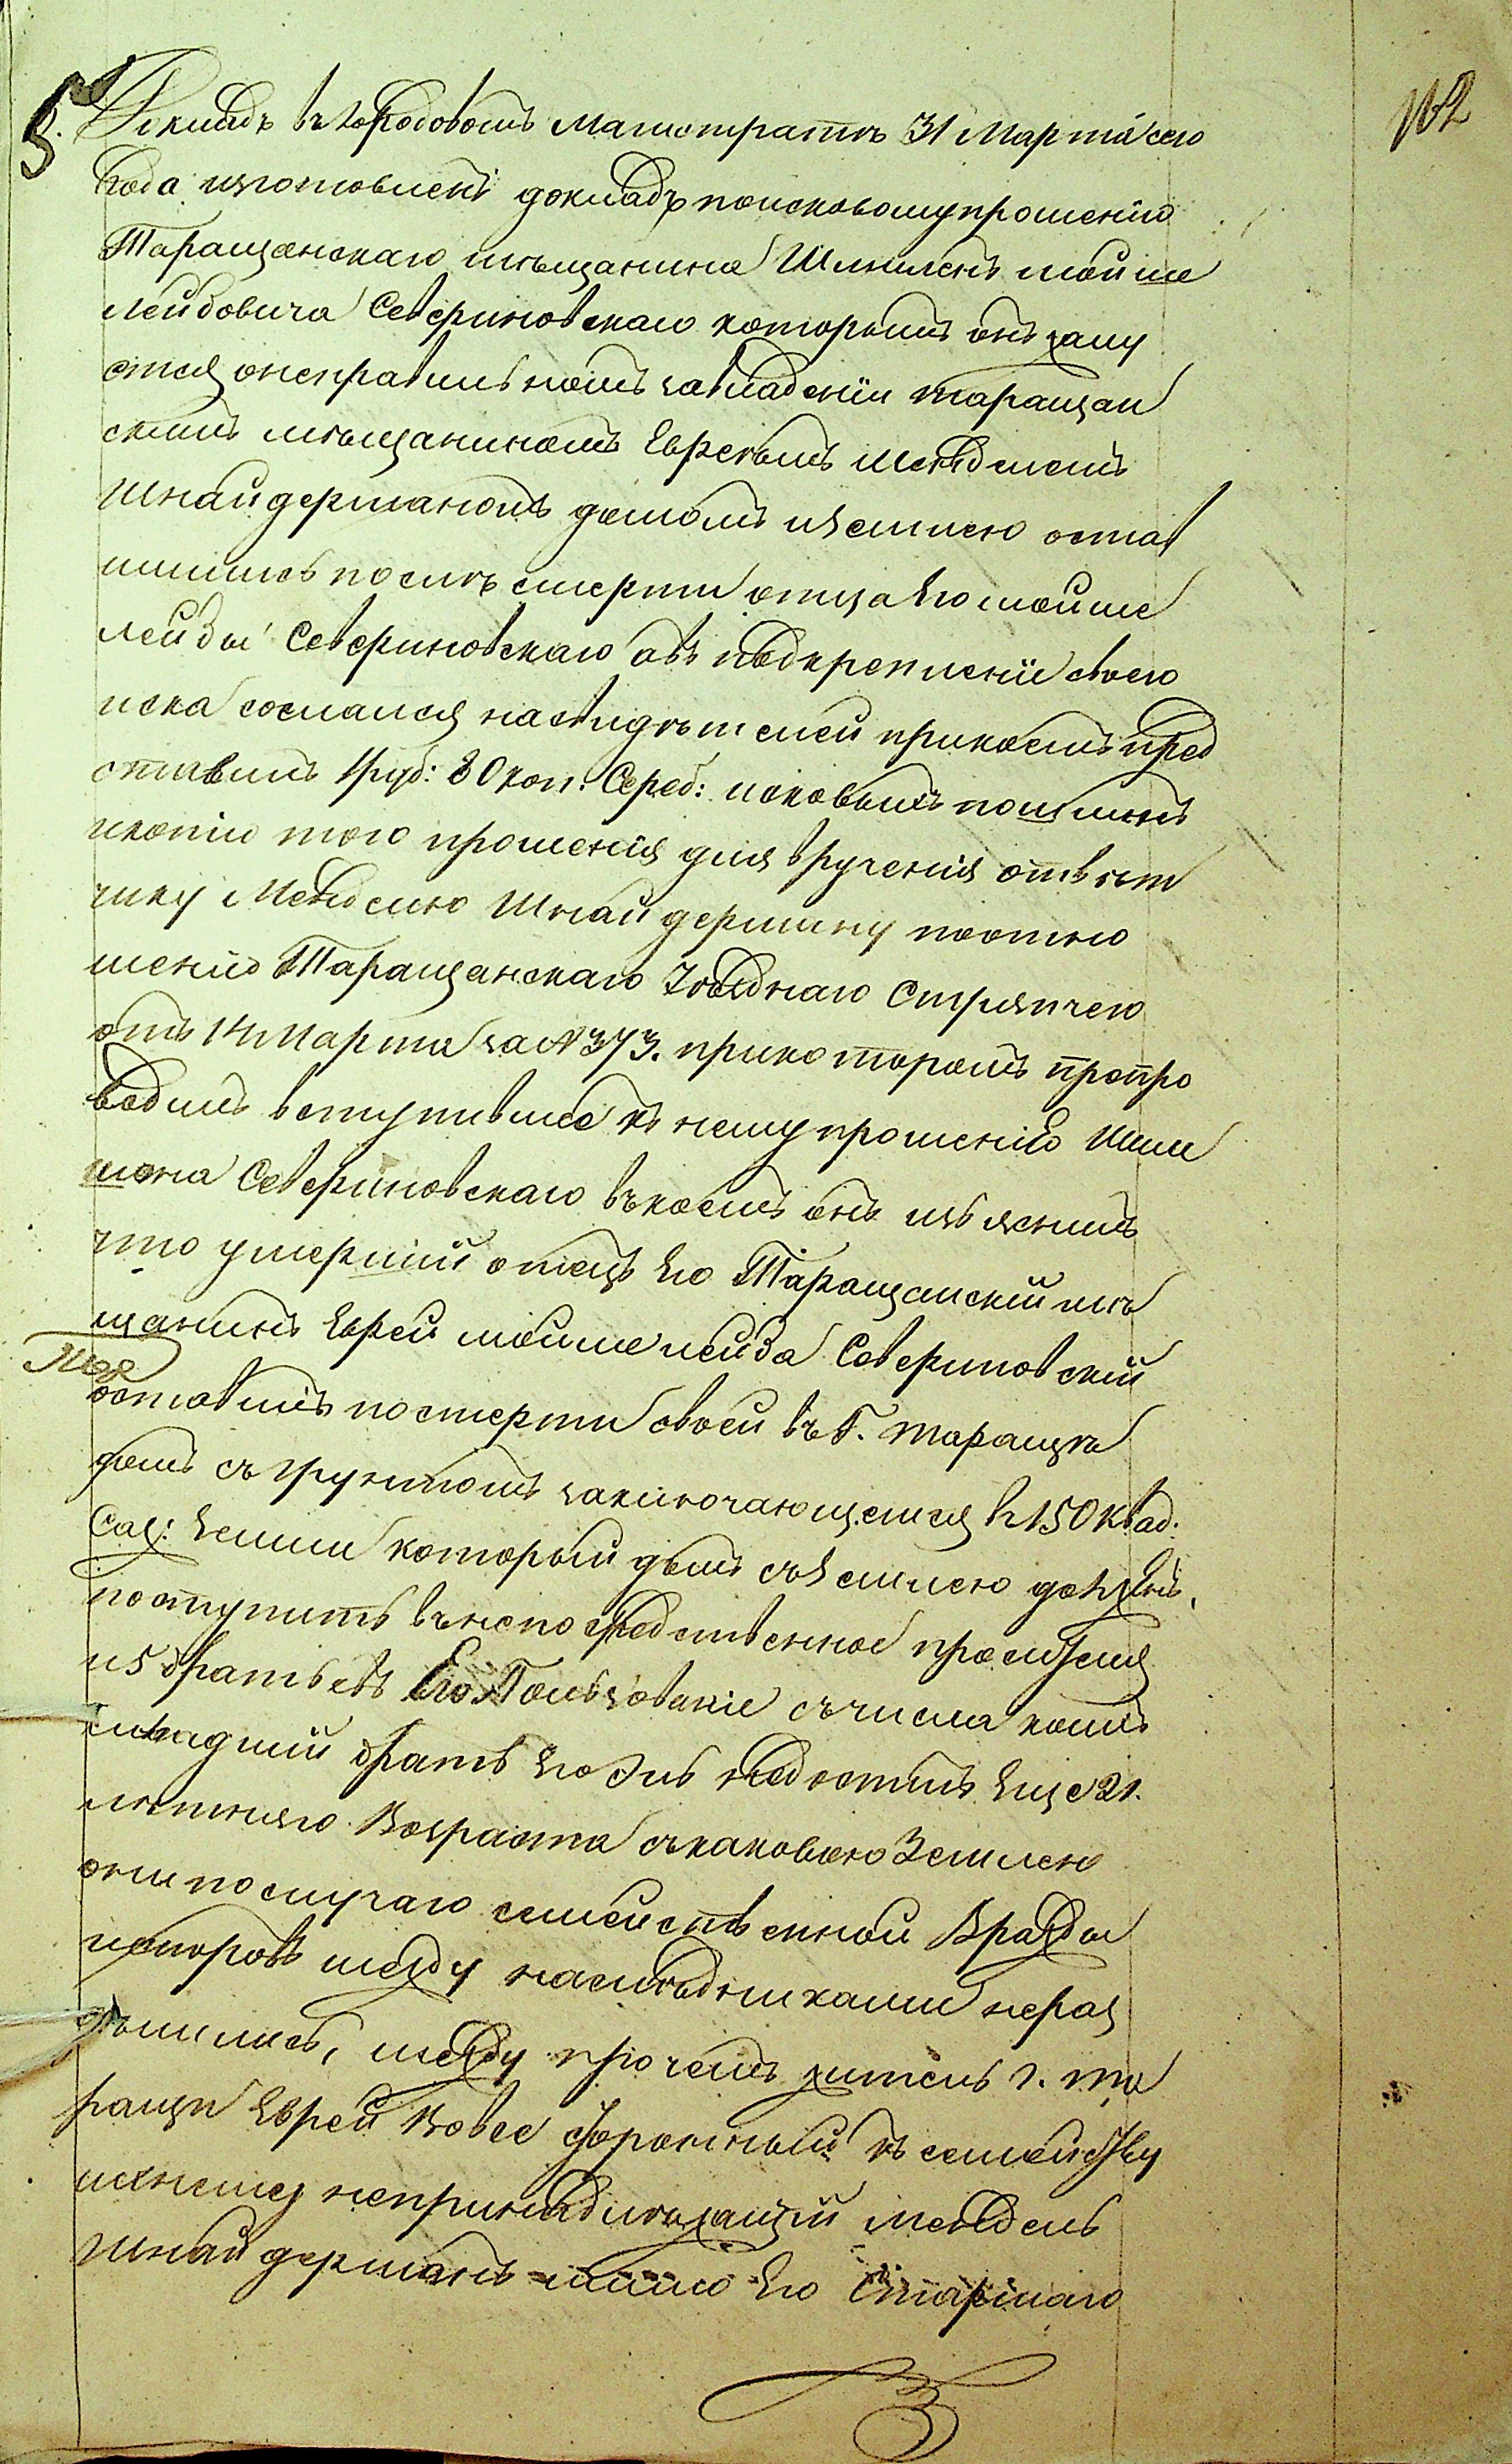 102
5. Докладъ въ Городовомъ Магистратѣ 31 Марта сего
года изготовленъ докладъ поисковому прошенію
Таращанскаго мѣщанина Шмилена Мойше
лейбовича Севериновскаго которымъ онъ жалу
ется онеправильномъ завладеніи таращан
скимъ мѣщаниномъ Евреемъ Менделемъ
Шнайдерманомъ домомъ иземлею остав
шимись послѣ смерти отца Его мойше
лейбы Севериновскаго авъ подкрепленіе своего
иска сослался насвидѣтелей прикоемъ пред
ставилъ 1 руб: 80 коп: Сереб: исковыхъ пошлинъ
икопію того прошенія для врученія отвѣт
чику Менделю Шнайдерману поотно
шенію Таращанскаго Уѣзднаго Стряпчего
отъ 14 Марта за N 373. прикоторомъ препро
водилъ вступившее къ нему прошеніе Шми
лена Севериновскаго въкоемъ онъ изъяснилъ
что умершій отецъ Его Таращанскій мѣ
щанинъ Еврей мойше лейба Севериновскій
оставилъ посмерти своей въ Г. таращѣ
домъ съ грунтомъ заключающемся в 150 квад.
Саж: Земли который домъ съ Землею долженъ
поступить внепосредственное просителя
и 5 братьевъ Его Пользованіе счисла коихъ
младшій братъ Его Эль недостигъ Еще 21.
лѣтняго Возраста скаковою Землею
они послучаю семейственной Вражды
испоровъ между наслѣдниками нераз
дѣлились, между прочемъ житель г. та
ращи Еврей Вовсе Сторонный къ семейству
ихнему непринадлежащій Мендель
Шнайдерманъ мимо Его Старшаго